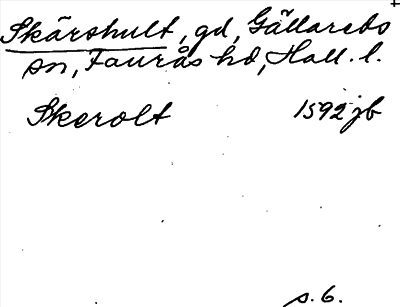 Skärshult, gd, Gällareds
sn, Faurås hd, Hall. l.
Skerolt 1592 jb
s. 6.